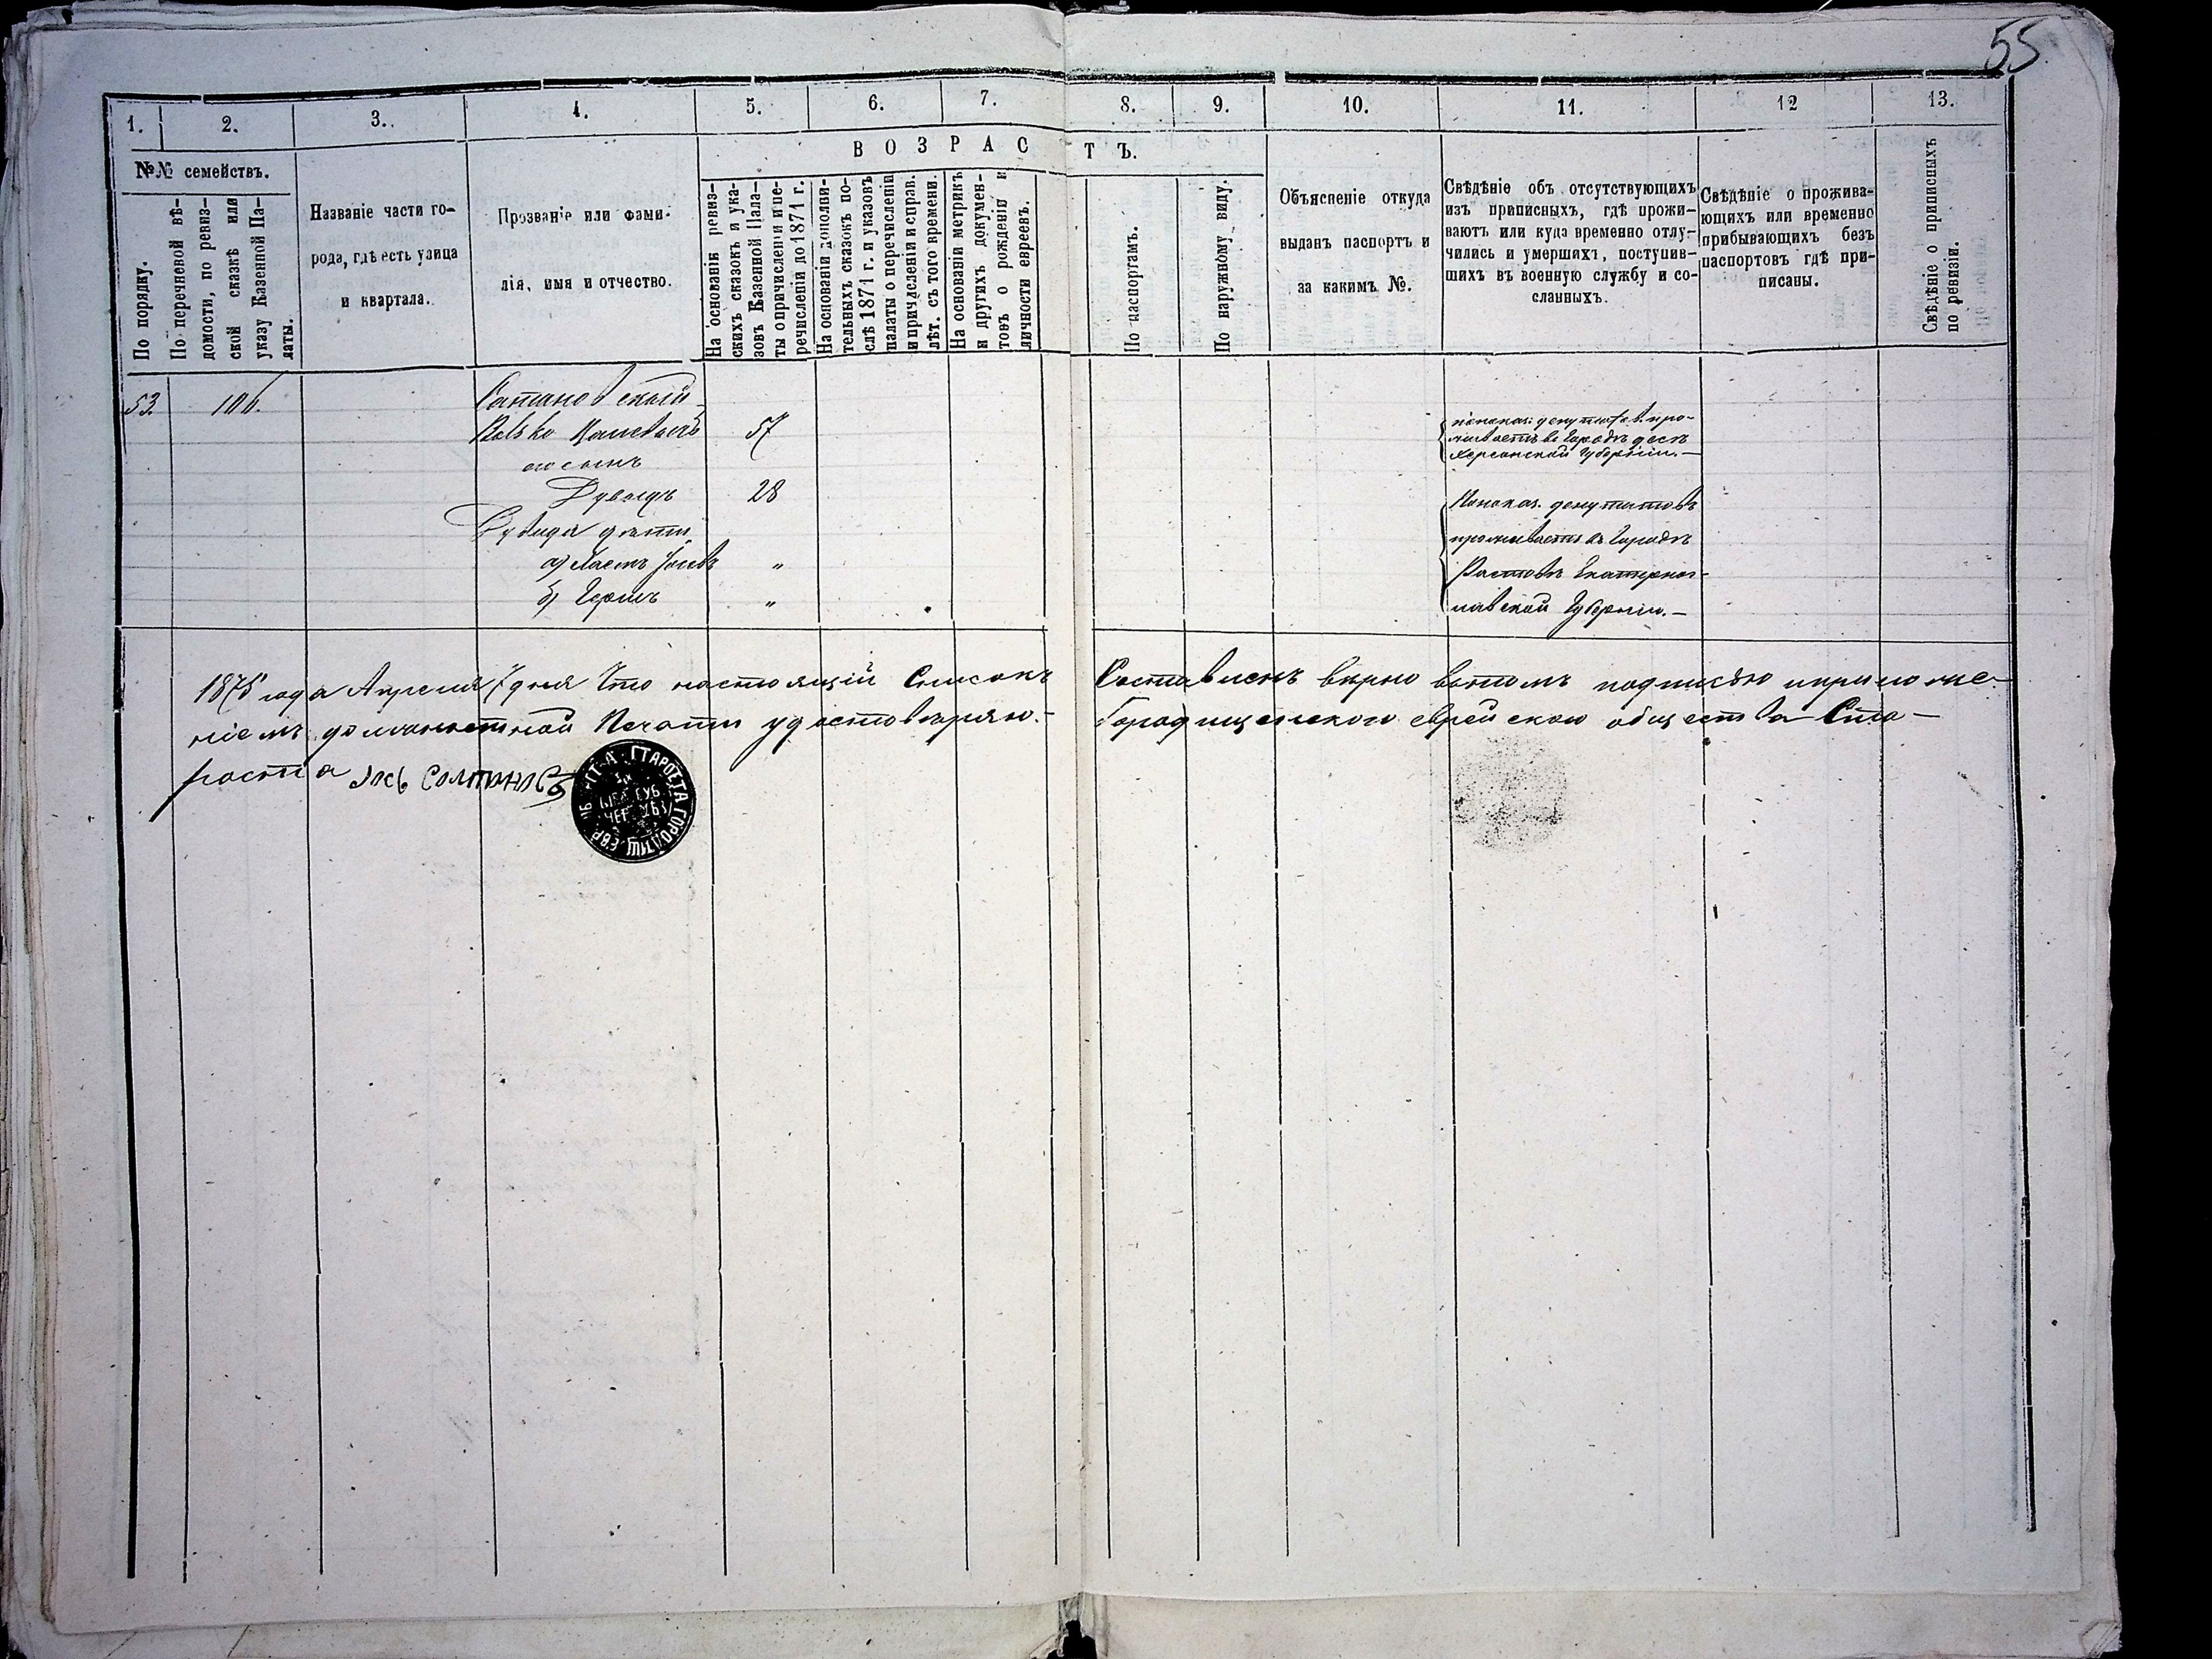 55.
1. 2. 3. 4. 5. 6. 7. 8. 9. 10. 11. 12 13.
№№ семействъ.
По порядку.
По перечневой вѣ-
домости, по ревиз-
ской сказкѣ или
указу Казенной Па-
латы.
Названіе части го-
рода, гдѣ есть улица
и квартала.
Прозваніе или фами-
лія, имя и отчество.
ВОЗРАСТЪ.
На основаніи ревиз-
скихъ сказокъ и ука-
зовъ Казенной Пала-
ты о причисленіи и пе-
речисленіи до 1871 г.
На основаніи дополни-
тельныхъ сказокъ по-
слѣ 1871 г. и указовъ
палаты о перечисленіи
и причисленіи и справ.
лѣт. съ того времени.
На основаніи метрикъ
и другихъ докумен-
товъ о рожденіи и
личности евреевъ.
По паспортамъ.
По наружному виду.
Объясненіе откуда
выданъ паспортъ и
за какимъ №.
Свѣдѣніе объ отсутствующихъ
изъ приписныхъ, гдѣ прожи-
ваютъ или куда временно отлу-
чились и умершихъ, поступив-
шихъ въ военную службу и со-
сланныхъ.
Свѣдѣніе о прожива-
ющихъ или временно
прибывающихъ безъ
паспортовъ гдѣ при-
писаны.
Свѣдѣніе о приписныхъ
по ревизіи.
53. 106. Сатановскій
57
его сынъ
28
Дувида дѣти
а) Іосивъ „
б) Гершъ „
депутатов. про-
живаетъ въ Городѣ
Херсонской Губерніи.—
Попоказ. депутатовъ
проживаетъ въ Городѣ
Ростовѣ Екатеринос-
лавской Губерніи.—
1875 года Апреля 7 дня Что настоящій Списокъ Составленъ вѣрно вътомъ подписью иприложе-
ніемъ должностной Печати удостоверяю.— Городищенского еврейского общества Ста-
роста
СТАРОСТА ГОРОДИЩ. ЕВР.